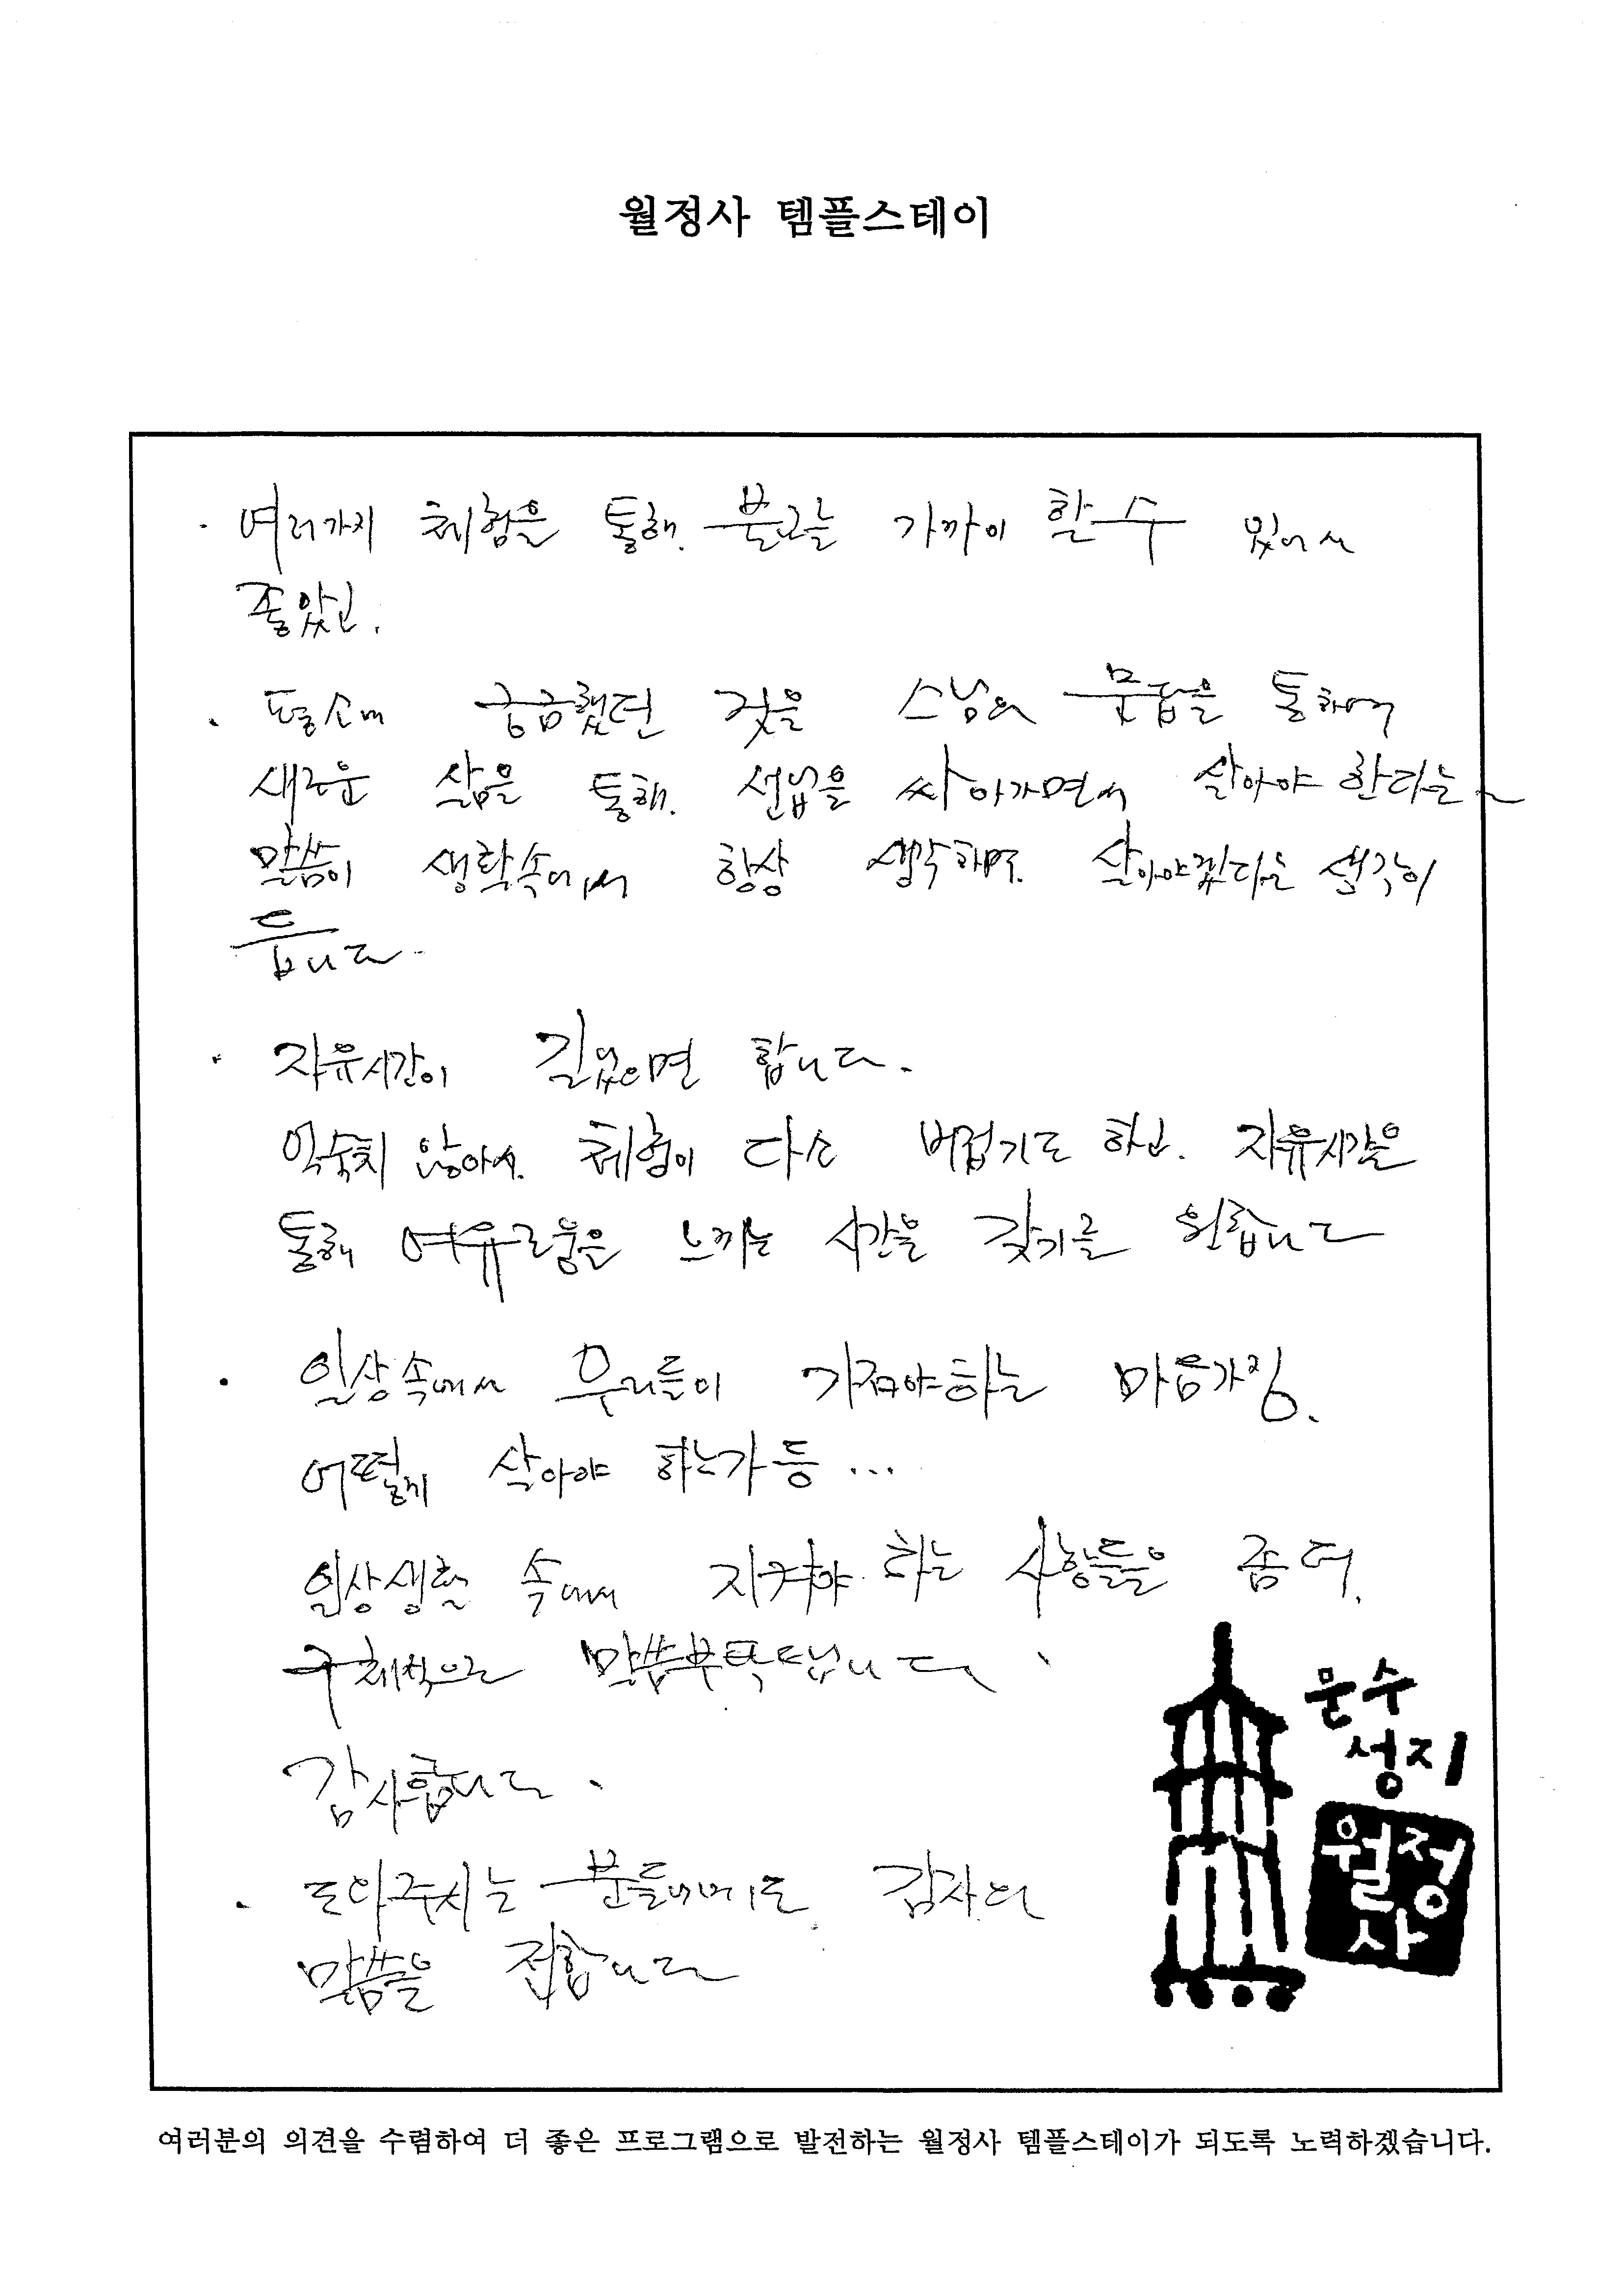 월정사 템플스테이
· 여러가지 체험을 통해. 불교를 가까이 할 수 있어서
좋았고.
· 평소에 궁금했던 것을 스님의 문답을 통하여
새로운 삶을 통해. 선업을 싸아가면서 살아야 한다는
말씀이 생활속에서 항상 생각하며. 살아야겠다는 생각이
듭니다.
· 자유시간이 길었으면 합니다.
익숙치 않아서. 체험이 다소 버겁기도 하고. 자유시간을
통해 여유로움을 느끼는 시간을 갖기를 원합니다
· 일상속에서 우리들이 가져야하는 마음가짐.
어떻게 살아야 하는가 등 ...
일상생활 속에서 지켜야 하는 사항들을 좀 더.
구체적으로 말씀부탁드립니다.
감사합니다.
· 도와주시는 분들에게도 감사의
말씀을 전합니다
문수
성지
월정
사
여러분의 의견을 수렴하여 더 좋은 프로그램으로 발전하는 월정사 템플스테이가 되도록 노력하겠습니다.